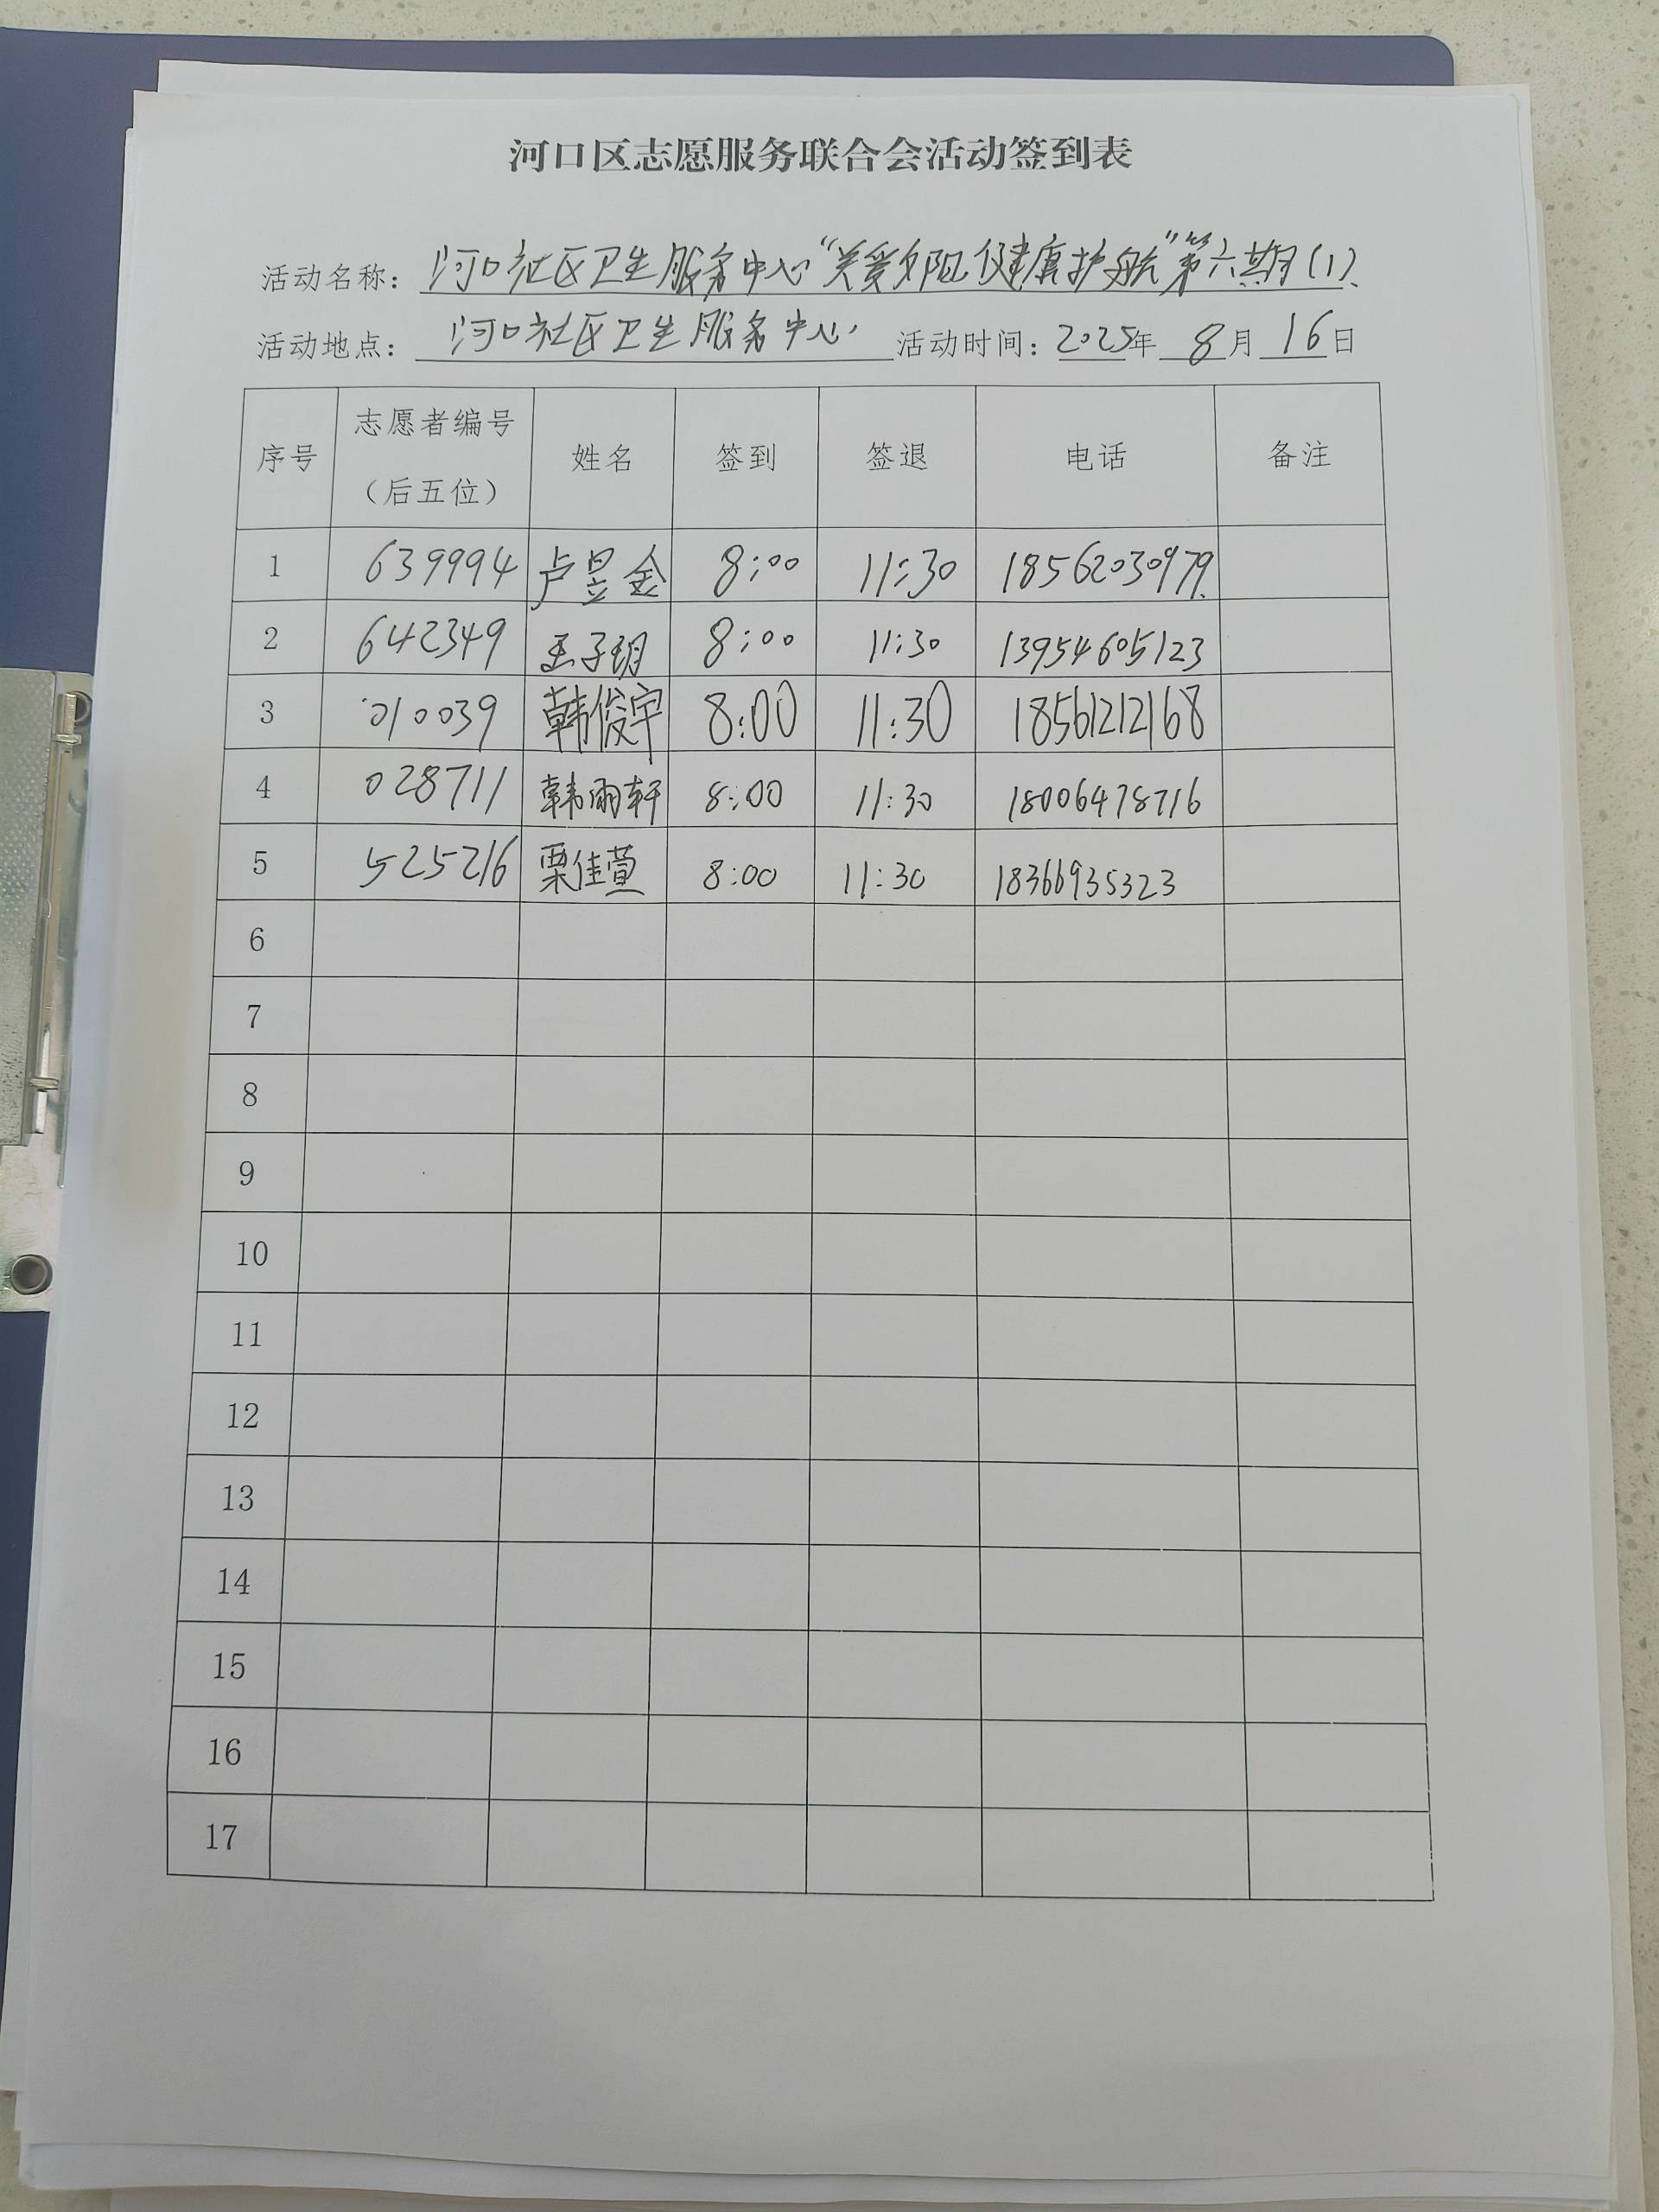 河口区志愿服务联合会活动签到表
活动名称：河口社区卫生服务中心“关爱夕阳 健康护航”第六期(1)
活动地点：河口社区卫生服务中心 活动时间：2025年 8月 16日
序号 志愿者编号（后五位） 姓名 签到 签退 电话 备注
1 639994 卢昱金 8:00 11:30 18562030979
2 642349 王子玥 8:00 11:30 13954605123
3 010039 韩俊宇 8:00 11:30 18561212168
4 028711 韩雨轩 8:00 11:30 18006478716
5 525216 栗佳萱 8:00 11:30 18366935323
6
7
8
9
10
11
12
13
14
15
16
17